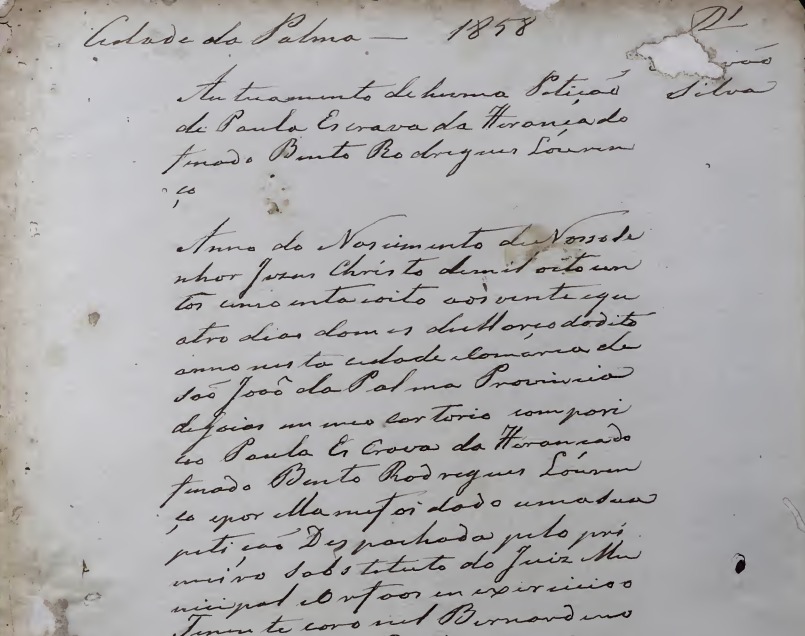 Cidade da Palma — 1858
Dr
vão
Silva
Autuamento de huma Petição
de Paula Escrava da Herança do
finado Bento Rodrigues Louren
ço
Anno do Nascimento de Nosso Se
nhor Jezus Christo de mil oito cen
tos cincoenta e oito aos vinte e qu
atro dias do mes de Março do dito
anno nesta cidade e Comarca de
São João da Palma Provincia
de Goias em meo cartorio compari
ceo Paula Escrava da Herança do
finado Bento Rodrigues Louren
ço e por Ella me foi dado uma sua
petição Despachada pelo pri
meiro Sobstetuto do Juiz Mu
nicipal e Orfaos em exercicio o
Tenente coronel Bernardino